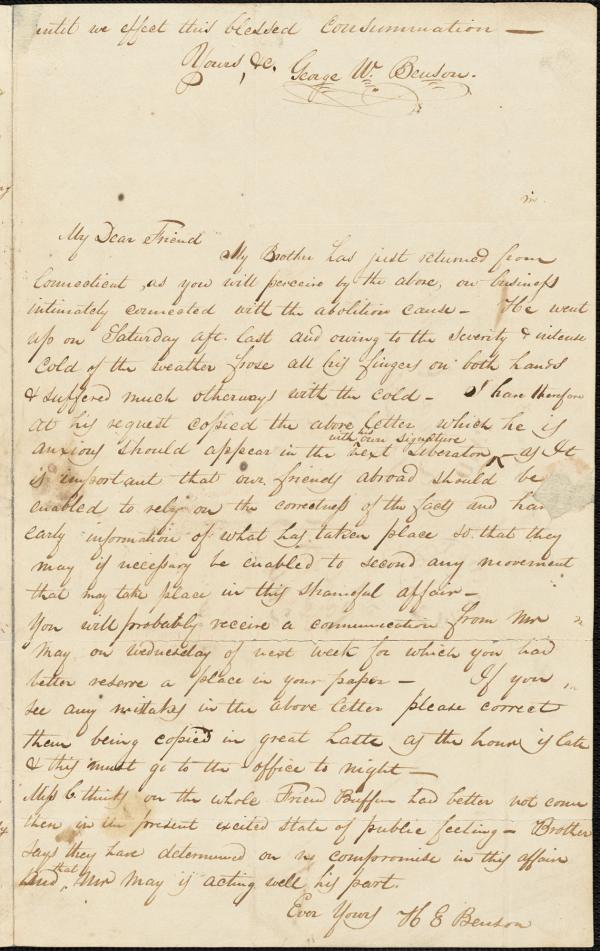 until we effect this blessed consummation —
Yours, &c. George W. Benson.
My Dear Friend My Brother has just returned from
Connecticut, as you will perceive by the above, on business
intimately connected with the abolition cause – He went
up on Saturday aft. last and owing to the severity & intense
cold of the weather froze all his fingers on both hands
& suffered much otherways with the cold – I have therefore
at his request copied the above letter which he is
with own signature
anxious should appear in the next Liberator ^ – as It
is important that our friends abroad should be
enabled to rely on the correctness of the facts and hav
early information of what has taken place so that they
may if necessary be enabled to second any movement
that may take place in this shameful affair –
You will probably receive a communication from Mr
May on wednesday of next week for which you had
better reserve a place in your paper – If you
see any mistakes in the above letter please correct
them being copied in great haste as the hour is late
& this must go to the office to night –
Miss C thinks on the whole Friend Buffum had better not come
then in the present excited state of public feeling – Brother
says they have determined on no compromise in this affair
that
and ^ Mr May is acting well his part.
Ever Yours H E Benson